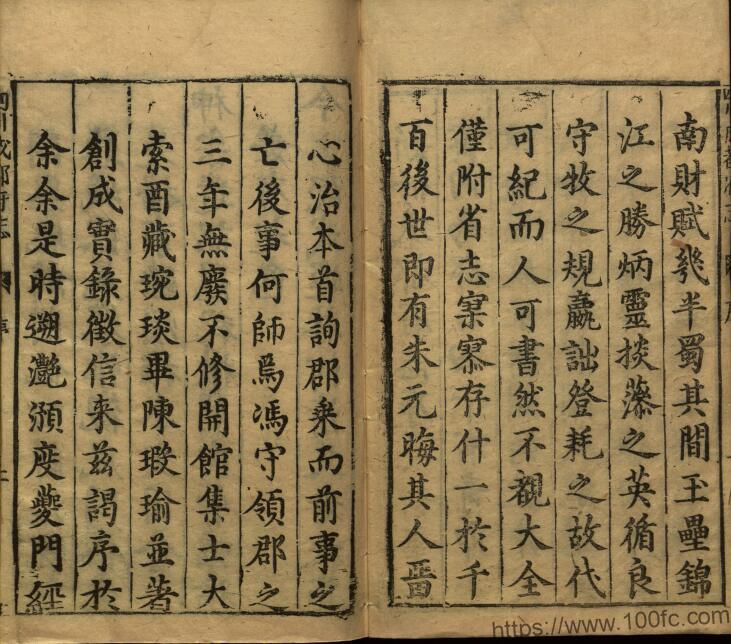 南財賦幾半蜀其間玉壘錦
江之勝炳靈掞藻之英循良
守牧之規羸詘登耗之故代
可紀而人可書然不覩大全
僅附省志寥寥存什一於千
百後世即有朱元晦其人啚
心治本首詢郡乗而前事之
亡後事何師焉馮守領郡之
三年無廢不修開館集士大
索酉藏琬琰畢陳瑕瑜並著
創成實錄徵信来茲謁序於
余余是時遡灔澦度夔門經
四川成都府志
序
https://www.100fc.com